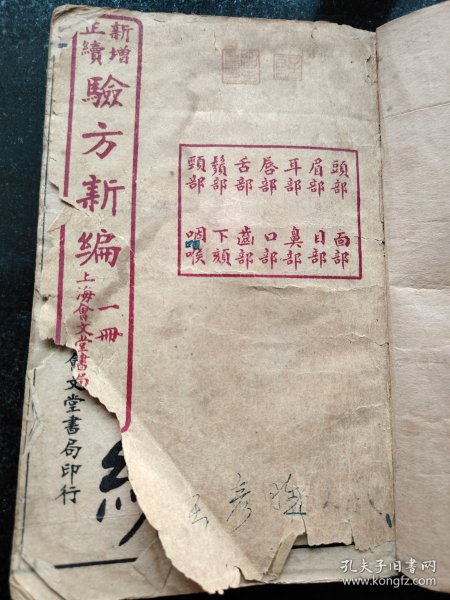 頭部 面部
眉部 目部
耳部 鼻部
唇部 口部
舌部 齒部
鬚部 下頦
頸部 咽喉
新增
正續
驗方新編
一冊
上海會文堂書局
會文堂書局印行
王彦
孔夫子旧书网
www.kongfz.com